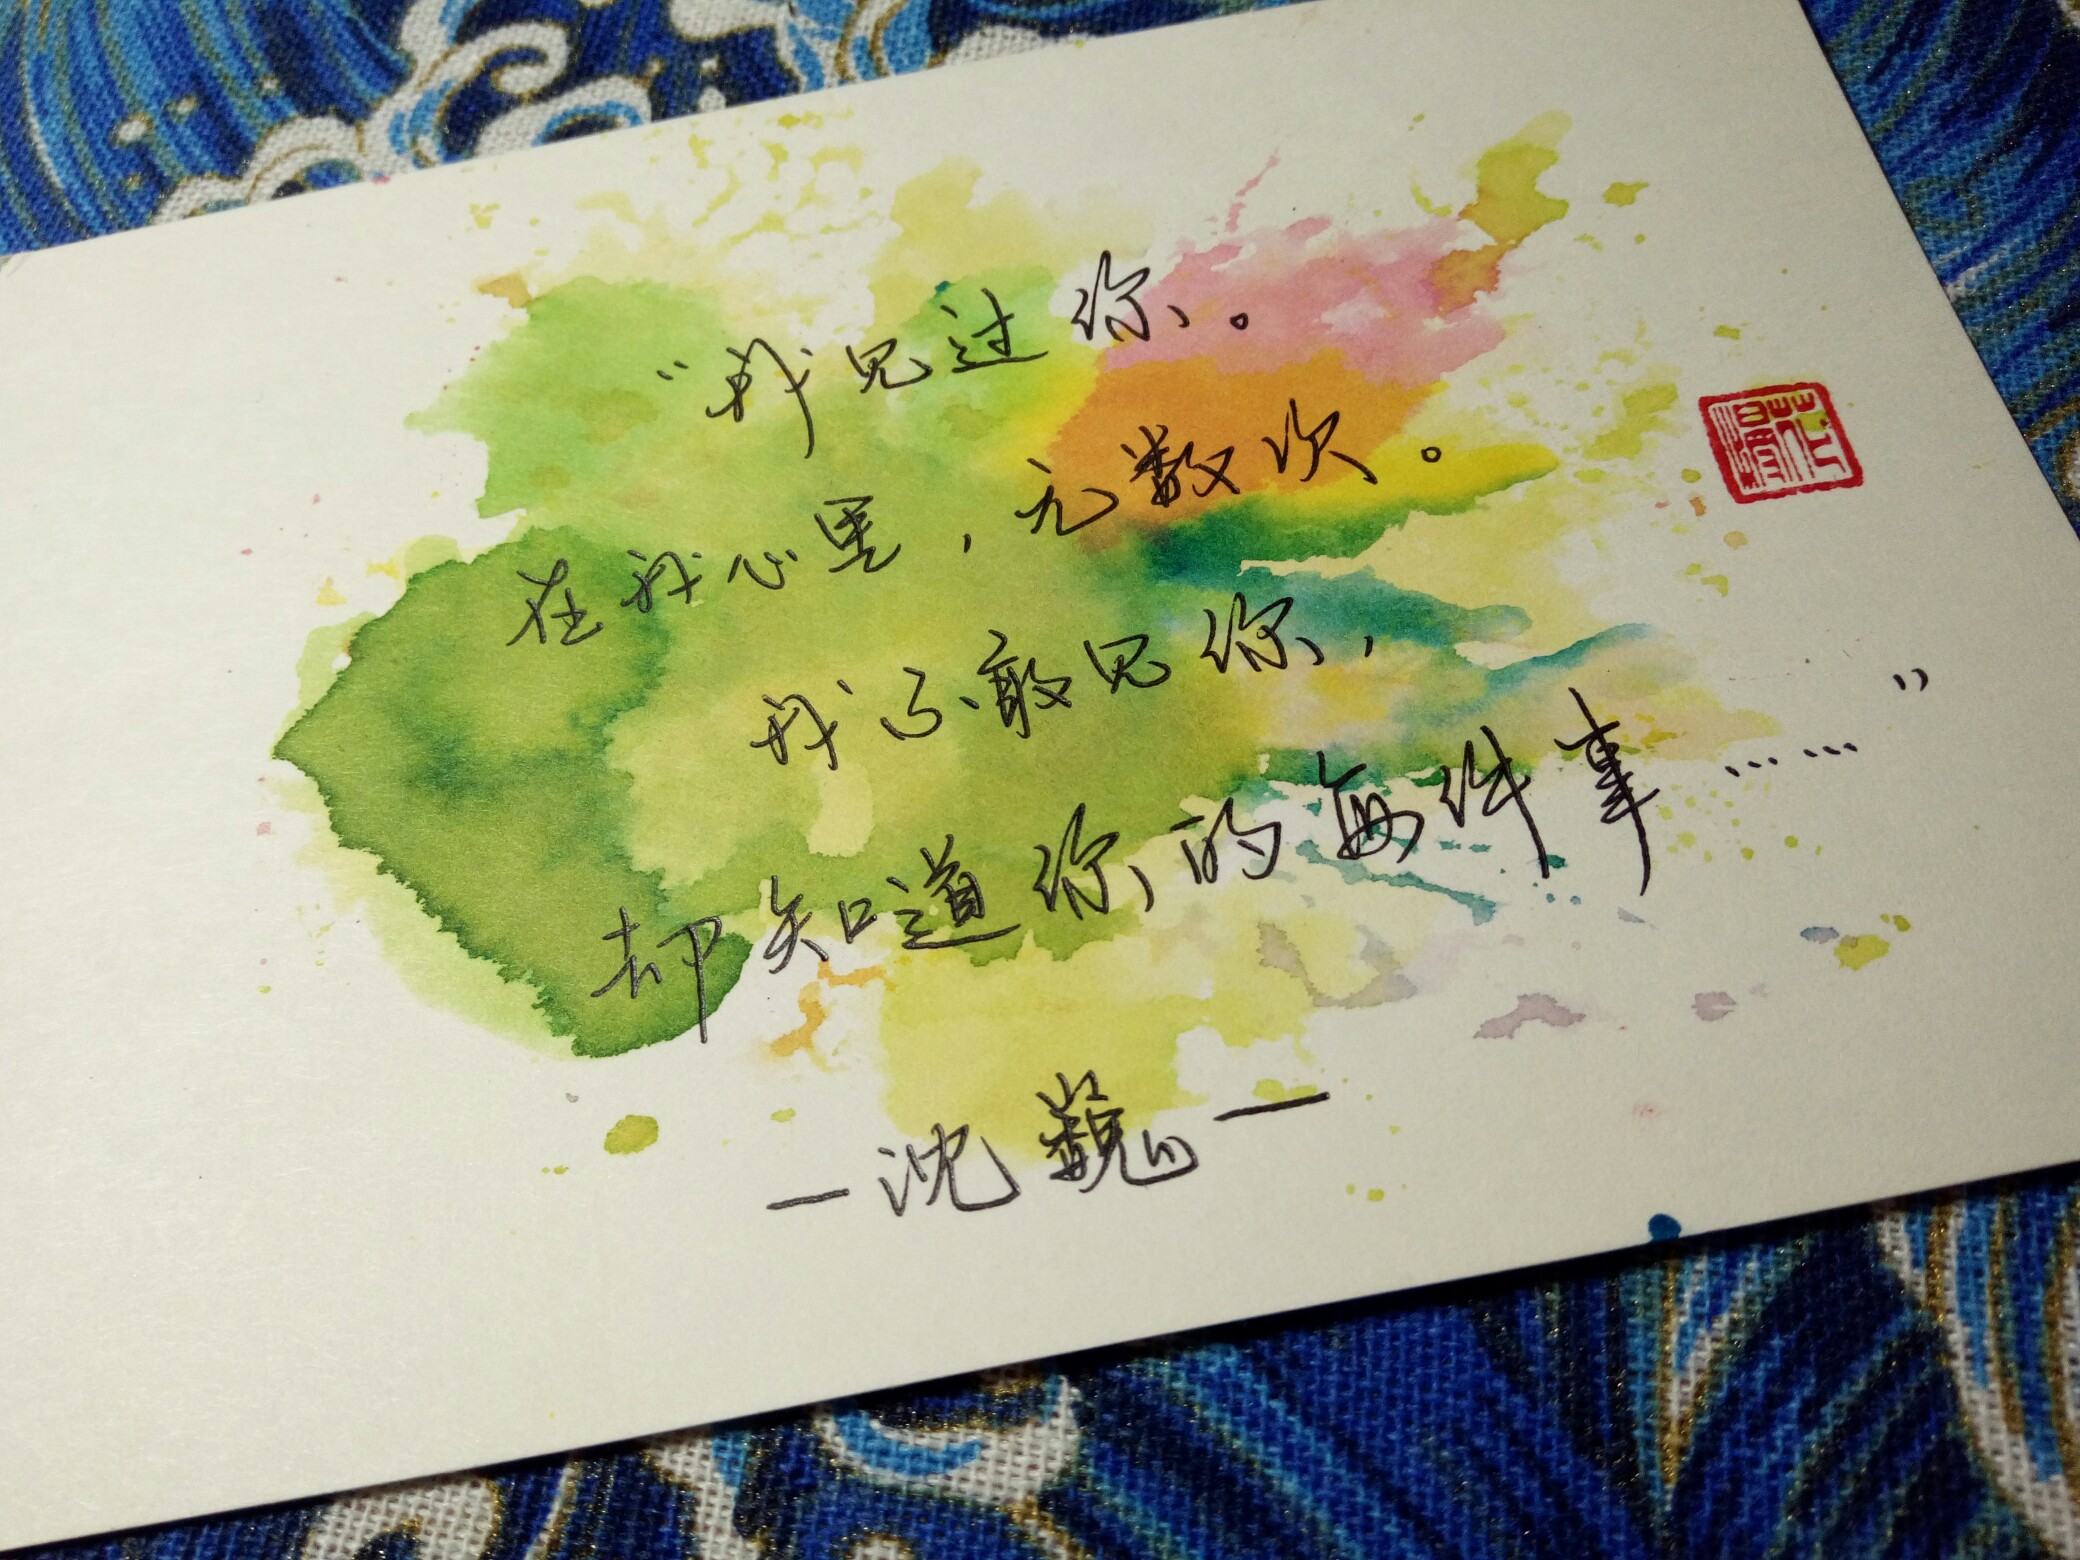 “我见过你。
在我心里，无数次。
我不敢见你，
却知道你的每件事……”
—沈巍—